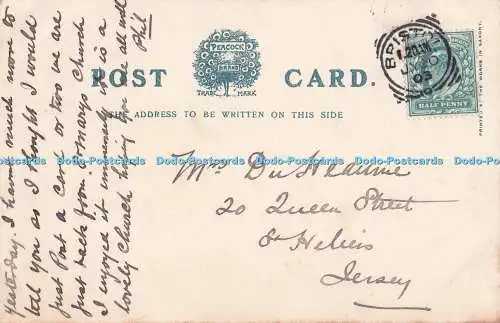 PEACOCK
BRAND
TRADE MARK
POST CARD.
THE ADDRESS TO BE WRITTEN ON THIS SIDE
BRISTOL
1.20 PM
03
HALF PENNY
PRINTED AT THE WORKS IN SAXONY.
yesterday. I havnt much more to
tell you as I thought I would
Just Post a Card or two we are
Just back from St Marys Church
I enjoyed it immensely it is a
lovely Church hoping you are all well
Phil
Mrs Du Heaume
20 Queen Street
St Heliers
Jersey
Dodo-Postcards Dodo-Postcards Dodo-Postcards Dodo-Postcards Dodo-Postcards